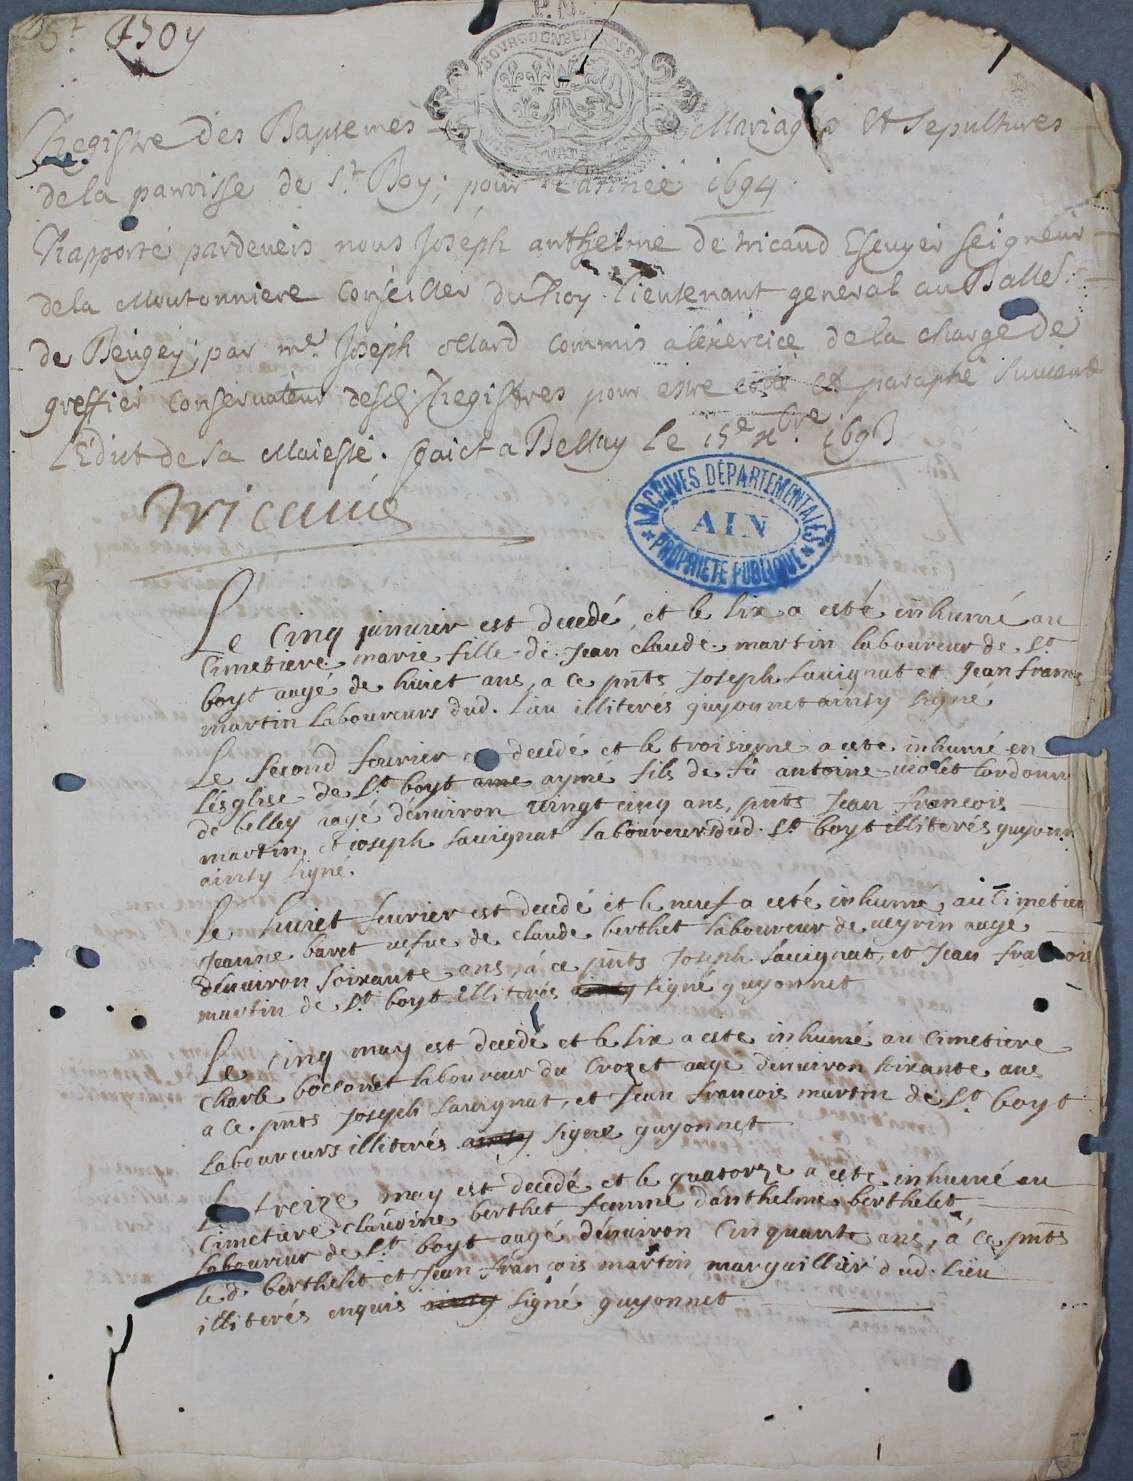 P. N.
St Boy
BOURGOGNE ET BRESSE
Registre des Baptemes Mariages Et Sepultures
de la parroisse de St. Boy; pour l'année 1694
Rapporté pardeveis nous Joséph anthelme de tricaud Escuyer seigneur
de la Moutonniere Conseiller du Roy lieutenant general au Balle.
de Beugey; par me. Joseph Mard commis a lexercice de la charge de
greffier conservateur desd. Registres pour estre coté et paraphé suivant
L'Edict de sa Maiesté. faict a Bellay le 15e xbre 1693
Tricaud
ARCHIVES DÉPARTEMENTALES
AIN
PROPRIÉTÉ PUBLIQUE
Le Cinq janvier est decedé, et le six a esté inhumé au
Cimetiere marie fille de Jean claude martin laboureur de St.
boyt aagé de huict ans, a ce pnts Joseph Sauignat et Jean francois
martin laboureurs dud. Lieu illiterés guyonnet ainsy signé
Le second feurier est decedé et le troisieme a esté inhumé en
L'esglise de St. boyt ame aymé fils de fû antoine violet Cordonnr
de belley aagé denuiron vingt cinq ans, pnts Jean francois
martin, et joseph Sauignat Laboureurs dud. St. boyt illiterés guyonnt
ainsy signé.
Le huict feurier est decedé et le neuf a esté inhumé au Cimetiere
Jeanne baret vefue de Claude berthet laboureur de veyrin aagé
dénuiron soixante ans, à ce pnts Joseph Sauignat, et Jean francois
martin de St. boyt illiterés ainsy signé guyonnet
Le cinq may est decedé et le six a esté inhumé au Cimetiere
Charle boccon et laboureur du Crozet aagé dénuiron soixante ans
a ce pnts Joseph Sauignat, et Jean francois martin de St. boyt
Laboureurs illiterés ainsy signé guyonnet
Le treize may est decedé et le quatorze a esté inhumé au
Cimetiere claudine berthet femme danthelme berthelet
laboureur de St. boyt aagé dénuiron Cinquante ans, à ce pnts
le d. berthelet et Jean francois martin marguillier dud. lieu
illiterés enquis ainsy signé guyonnet